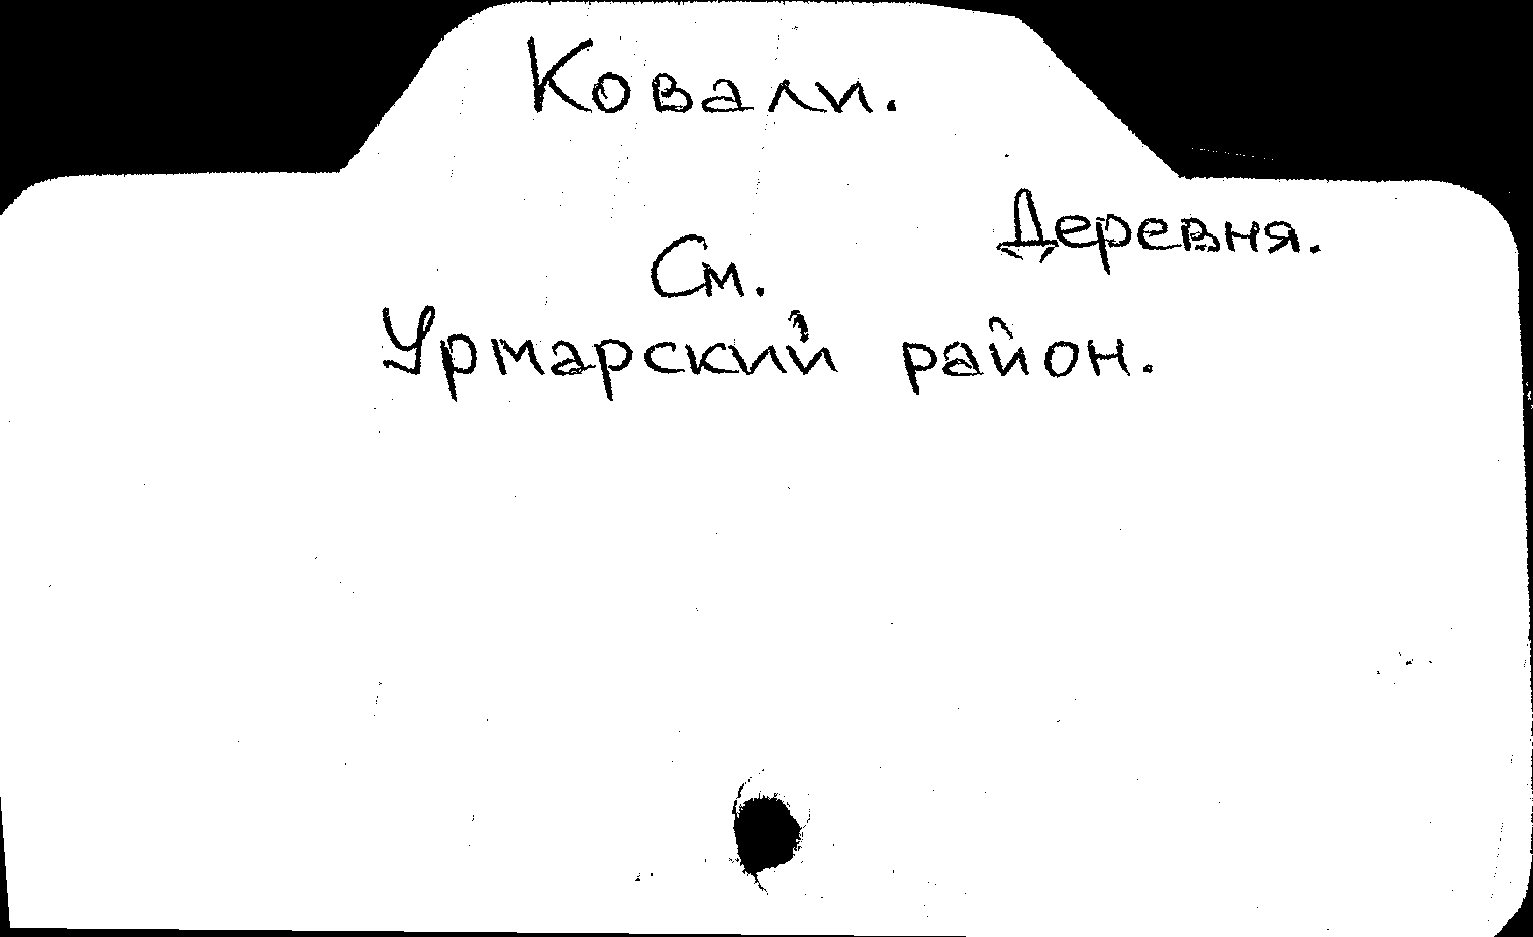 Ковали.
Деревня.
См.
Урмарский район.